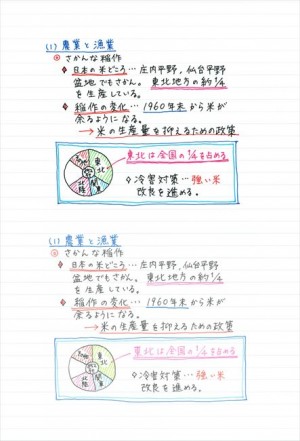 (1) 農業と漁業
◎ さかんな稲作
♦ 日本の米どころ…庄内平野,仙台平野
盆地でもさかん。東北地方の約1/4
を生産している。
♦ 稲作の変化…1960年末から米が
余るようになる。
→米の生産量を抑えるための政策
東北は全国の1/4を占める
その他
東北
関東
北陸
◇冷害対策…強い米
改良を進める。
(1) 農業と漁業
◎ さかんな稲作
♦ 日本の米どころ…庄内平野,仙台平野
盆地でもさかん。東北地方の約1/4
を生産している。
♦ 稲作の変化…1960年末から米が
余るようになる。
→米の生産量を抑えるための政策
東北は全国の1/4を占める
その他
東北
関東
北陸
◇冷害対策…強い米
改良を進める。